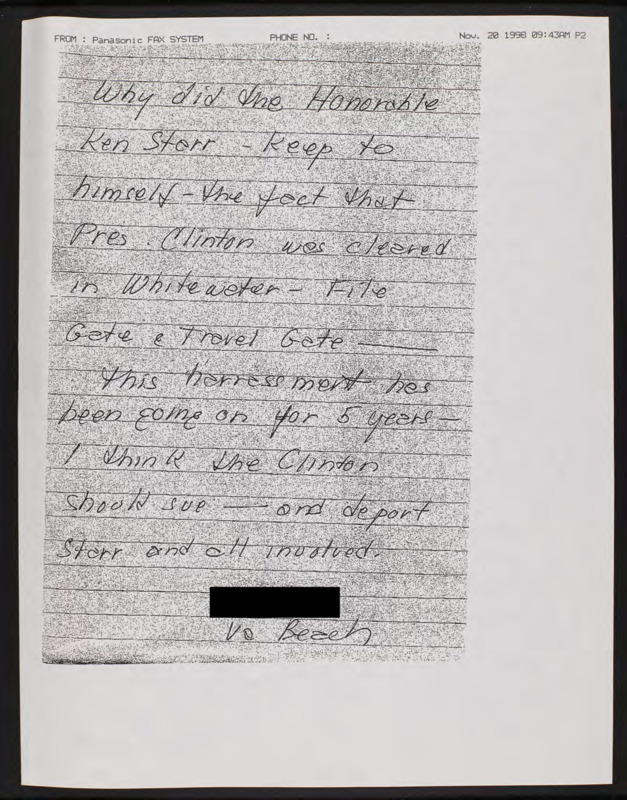 FROM : Panasonic FAX SYSTEM PHONE NO. : Nov. 20 1998 09:43AM P2
Why did the Honorable
Ken Starr - keep to
himself - the fact that
Pres. Clinton was cleared
in Whitewater - File
Gate & Travel Gate ——
this harressment has
been going on for 5 years —
I think the Clinton
should sue — and deport
Starr and all involved.
Va Beach